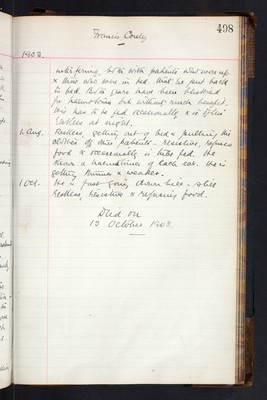 498
Francis Couty
1908.
interfering, both with patients who were up
& those who were in bed that he was put back
to bed. Both ears have been blistered
for haematoma but without much benefit.
He has to be fed occasionally & is often
restless at night.
1. Aug. Restless, getting out of bed & pulling the
clothes off other patients. resistive, refuses
food & occasionally is tube fed. He
shows a haematoma of each ear. He is
getting thinner & weaker.
1 Oct. He is fast going down hill - still
restless, resistive & refusing food.
Died on
15 October 1908.